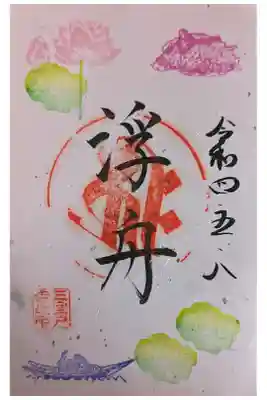 令和四五・八
浮舟